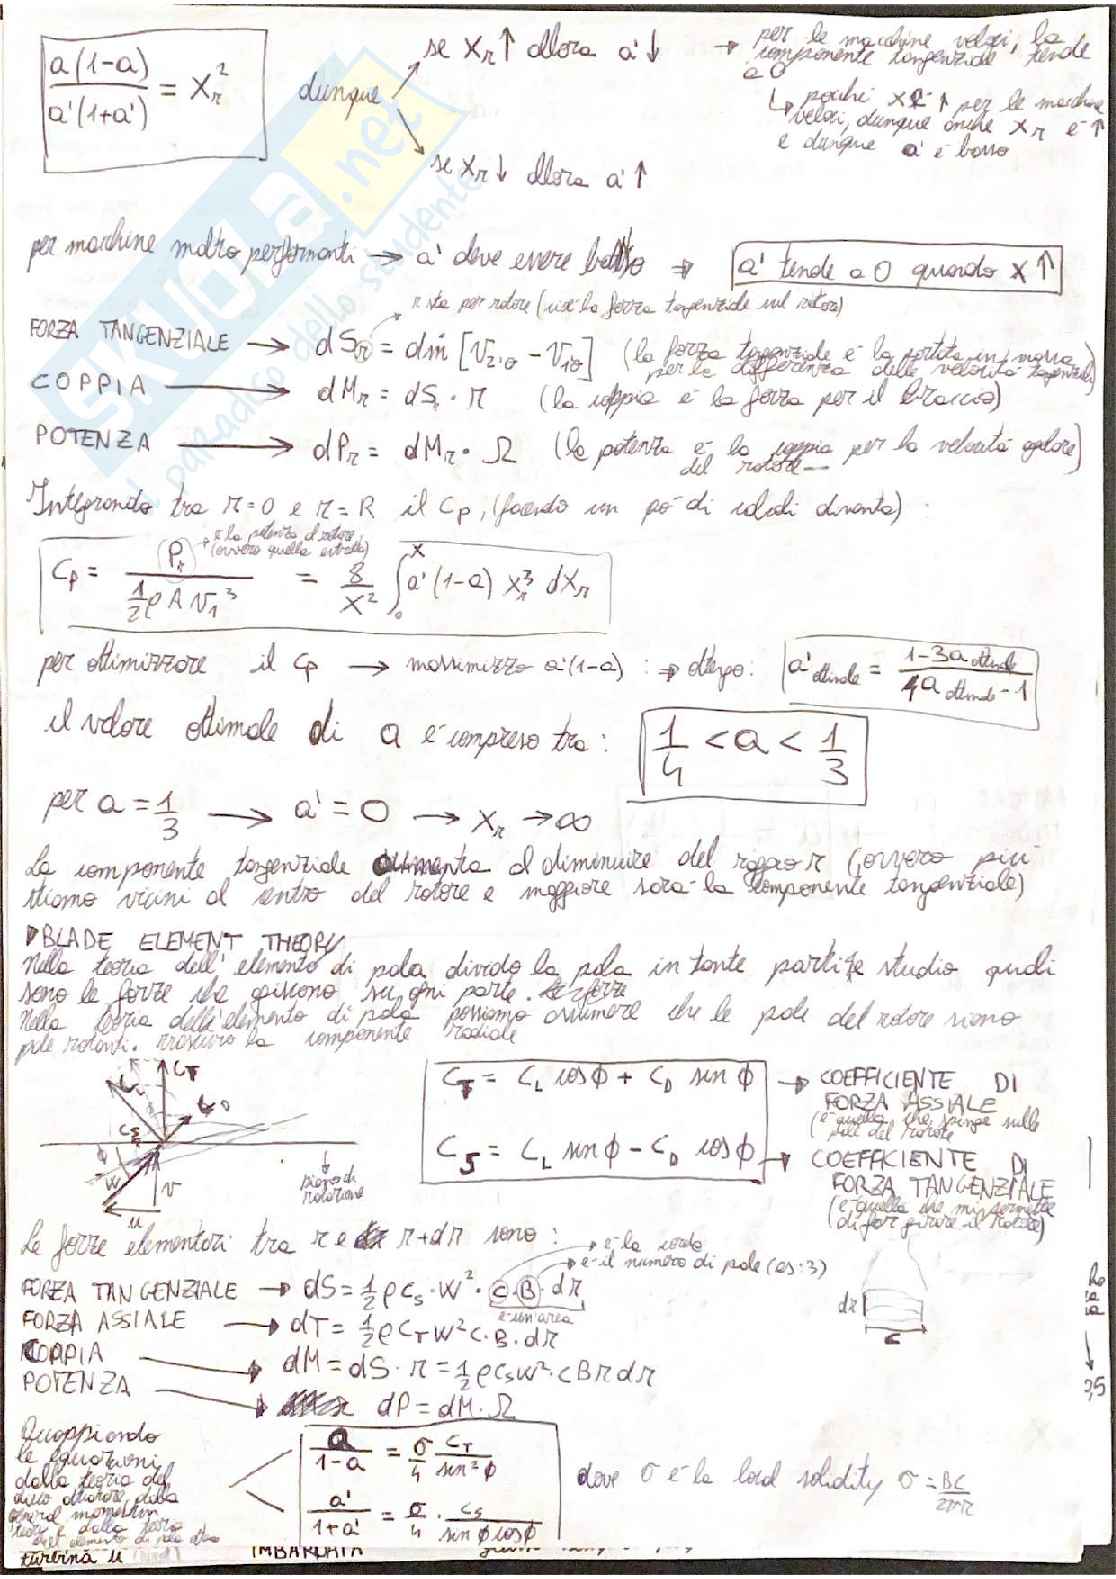 a(1-a) / a'(1+a') = X_r²
dunque
se X_r ↑ allora a' ↓ → per le macchine veloci, la
componente tangenziale tende
a 0
↳ poiché X è ↑ per le macchine
veloci, dunque anche X_r è ↑
e dunque a' è basso
se X_r ↓ allora a' ↑
SKUOLA.net
il paradiso dello studente
per machine molto performanti → a' deve essere basso ⇒ a' tende a 0 quando X ↑
r sta per rotore (cioè la forza tangenziale sul rotore)
FORZA TANGENZIALE → dS_r = dṁ [V_2'θ - V_1θ] (la forza tangenziale è la portata in massa
per la differenza delle velocità tangenziali)
COPPIA → dM_r = dS_r · r (la coppia è la forza per il braccio)
POTENZA → dP_r = dM_r · Ω (la potenza è la coppia per la velocità angolare)
del rotore
Integrando tra r=0 e r=R il Cp, (facendo un po' di calcoli diventa) :
è la potenza al rotore
(ovvero quella estratta)
Cp = P_r / (½ ρ A V_1³) = 8/X² ∫₀^X a'(1-a) X_r³ dX_r
per ottimizzare il Cp → massimizzo a'(1-a) : ⇒ ottengo: a'ottimale = (1-3a ottimale) / (4a ottimale - 1)
il valore ottimale di a è compreso tra : 1/4 < a < 1/3
per a = 1/3 → a' = 0 → X_r → ∞
La componente tangenziale aumenta al diminuire del raggio r (ovvero più
stiamo vicini al centro del rotore e maggiore sarà la componente tangenziale)
BLADE ELEMENT THEORY
Nella teoria dell'elemento di pala divido la pala in tante parti e studio quali
sono le forze che agiscono su ogni parte.
Nella teoria dell'elemento di pala possiamo assumere che le pale del rotore siano
pale rotanti. trascuro la componente radiale
C_T
C_L
C_D
C_S
φ
W
V
u
piano di
rotazione
C_T = C_L cos φ + C_D sin φ → COEFFICIENTE DI
FORZA ASSIALE
(è quella che spinge sulle
pale del rotore
C_S = C_L sin φ - C_D cos φ → COEFFICIENTE DI
FORZA TANGENZIALE
(è quella che mi permette
di far girare il rotore)
Le forze elementari tra r e r+dr sono :
è la corda
è il numero di pale (es: 3)
FORZA TANGENZIALE → dS = ½ ρ C_S · W² · C · B · dr
è un'area
FORZA ASSIALE → dT = ½ ρ C_T W² C · B · dr
COPPIA → dM = dS · r = ½ ρ C_S W² · C B r dr
POTENZA → dP = dM · Ω
dr
c
Raggruppando
le equazioni
dalla teoria del
disco attuatore, dalla
general momentum
theory e dalla teoria
dell'elemento di pala
a / (1-a) = σ/4 · C_T / sin² φ
a' / (1+a') = σ/4 · C_S / (sin φ cos φ)
dove σ è la local solidity σ = BC / 2πr
turbina u
IMBARDATA